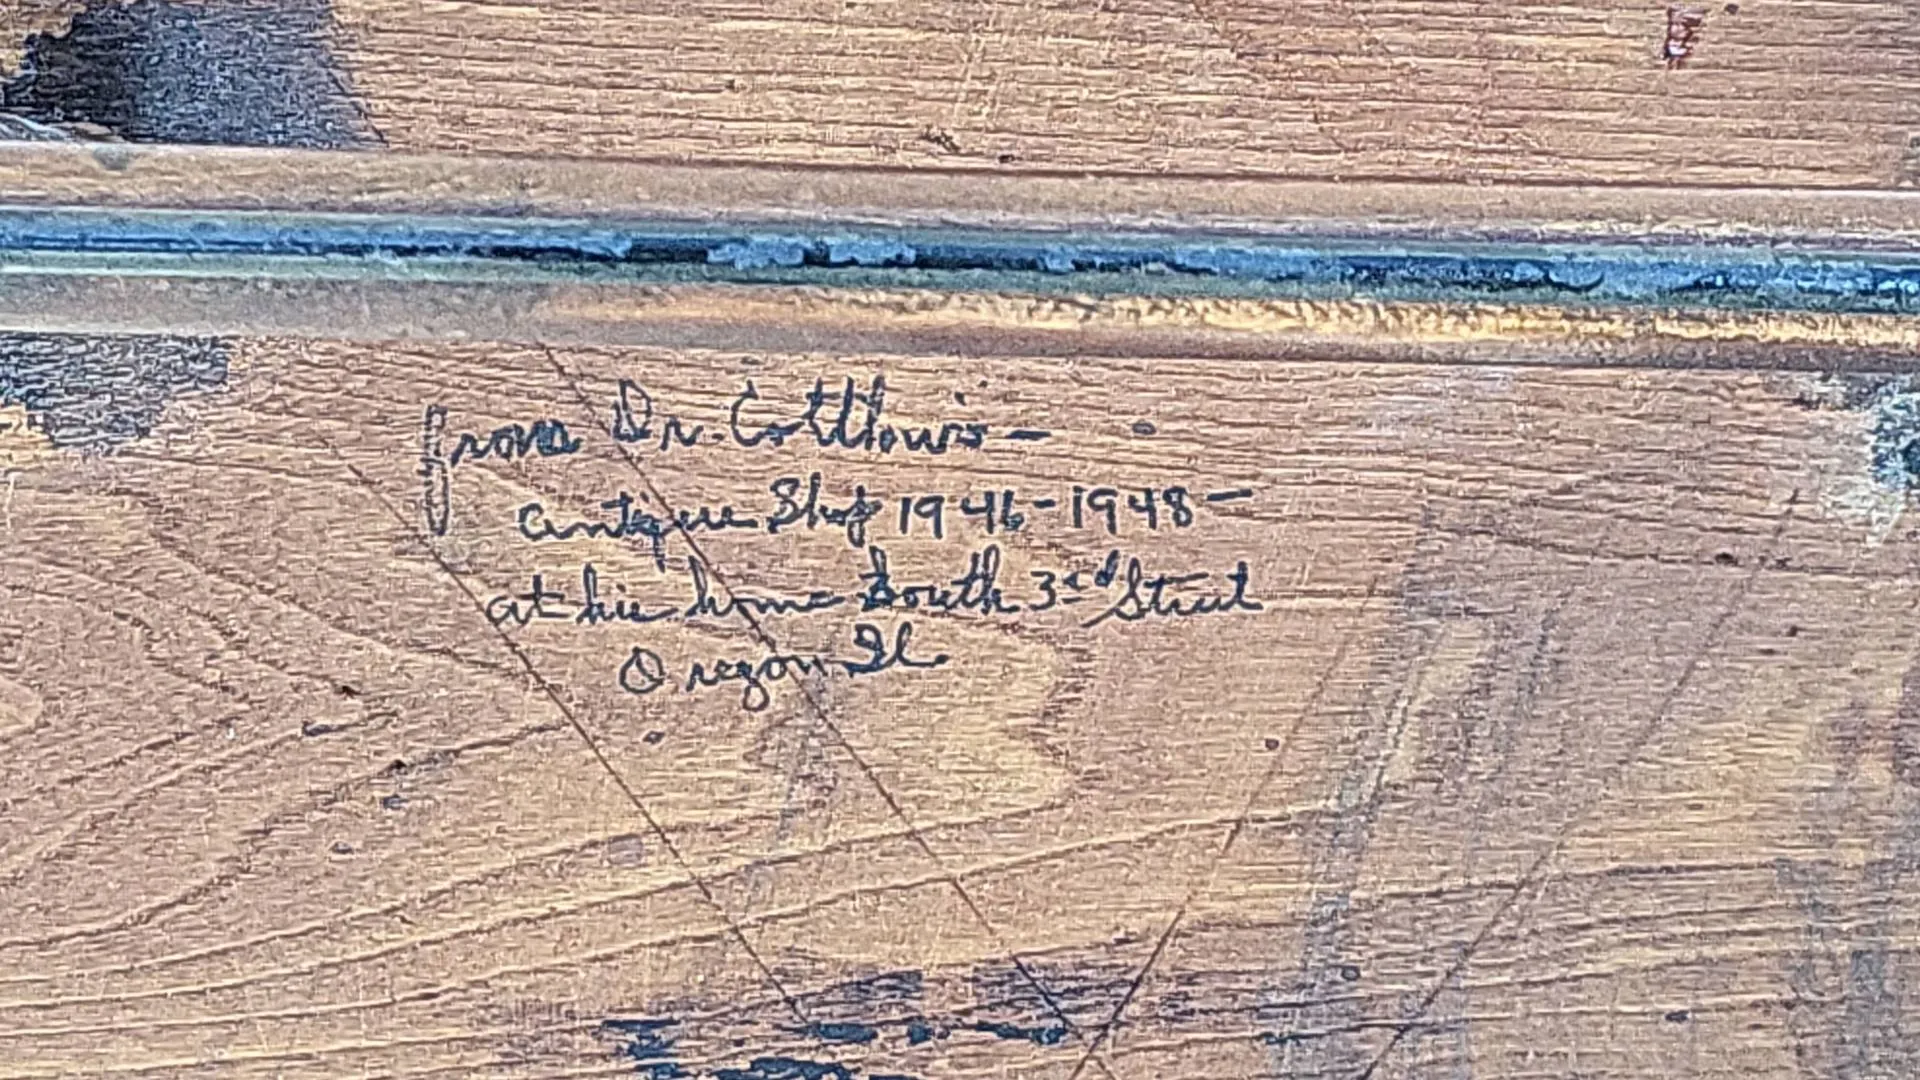 E
From Dr. Cottlow's –
antique Shop 1946-1948 –
at his home South 3rd Street
Oregon Il.